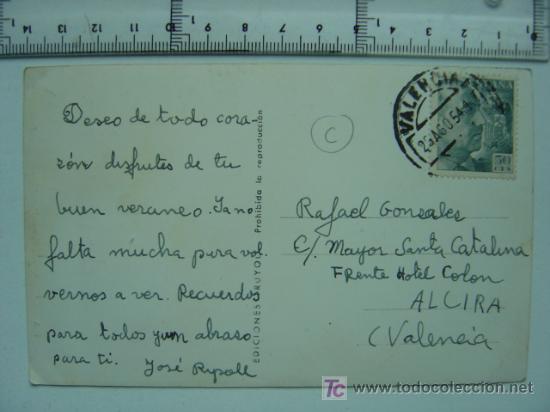 Deseo de todo cora-
zón disfrutes de tu
buen veraneo. Ya no
falta mucha para vol
vernos a ver. Recuerdos
para todos y un abraso
para ti. José Ripoll
EDICIONES
Prohibida la reproducción
C
VALENCIA
AGO 54
50
CTS
Rafael Gonzales
C/. Mayor Santa Catalina
Frente Hotel Colon
ALCIRA
(Valencia)
TC
todocoleccion
http://www.todocoleccion.net